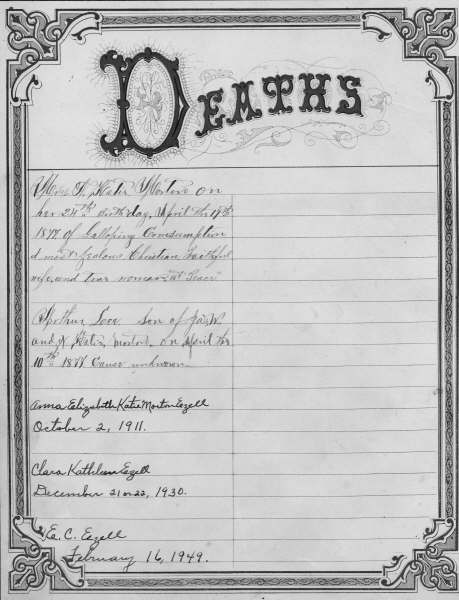 DEATHS
Mrs. N. Katie Morton on
her 24th birthday, April the 17th
1877 of Galloping Consumption
A most zealous Christian, faithful
wife, and true woman "At Peace"
Arthur son of Jas. W.
and N. Katie Morton on April the
10th 1877 Cause unknown
Anna Elizabeth Katie Morton Ezell
October 2, 1911.
Clara Kathleen Ezell
December 21 or 22, 1930.
E. C. Ezell
February 16, 1949.